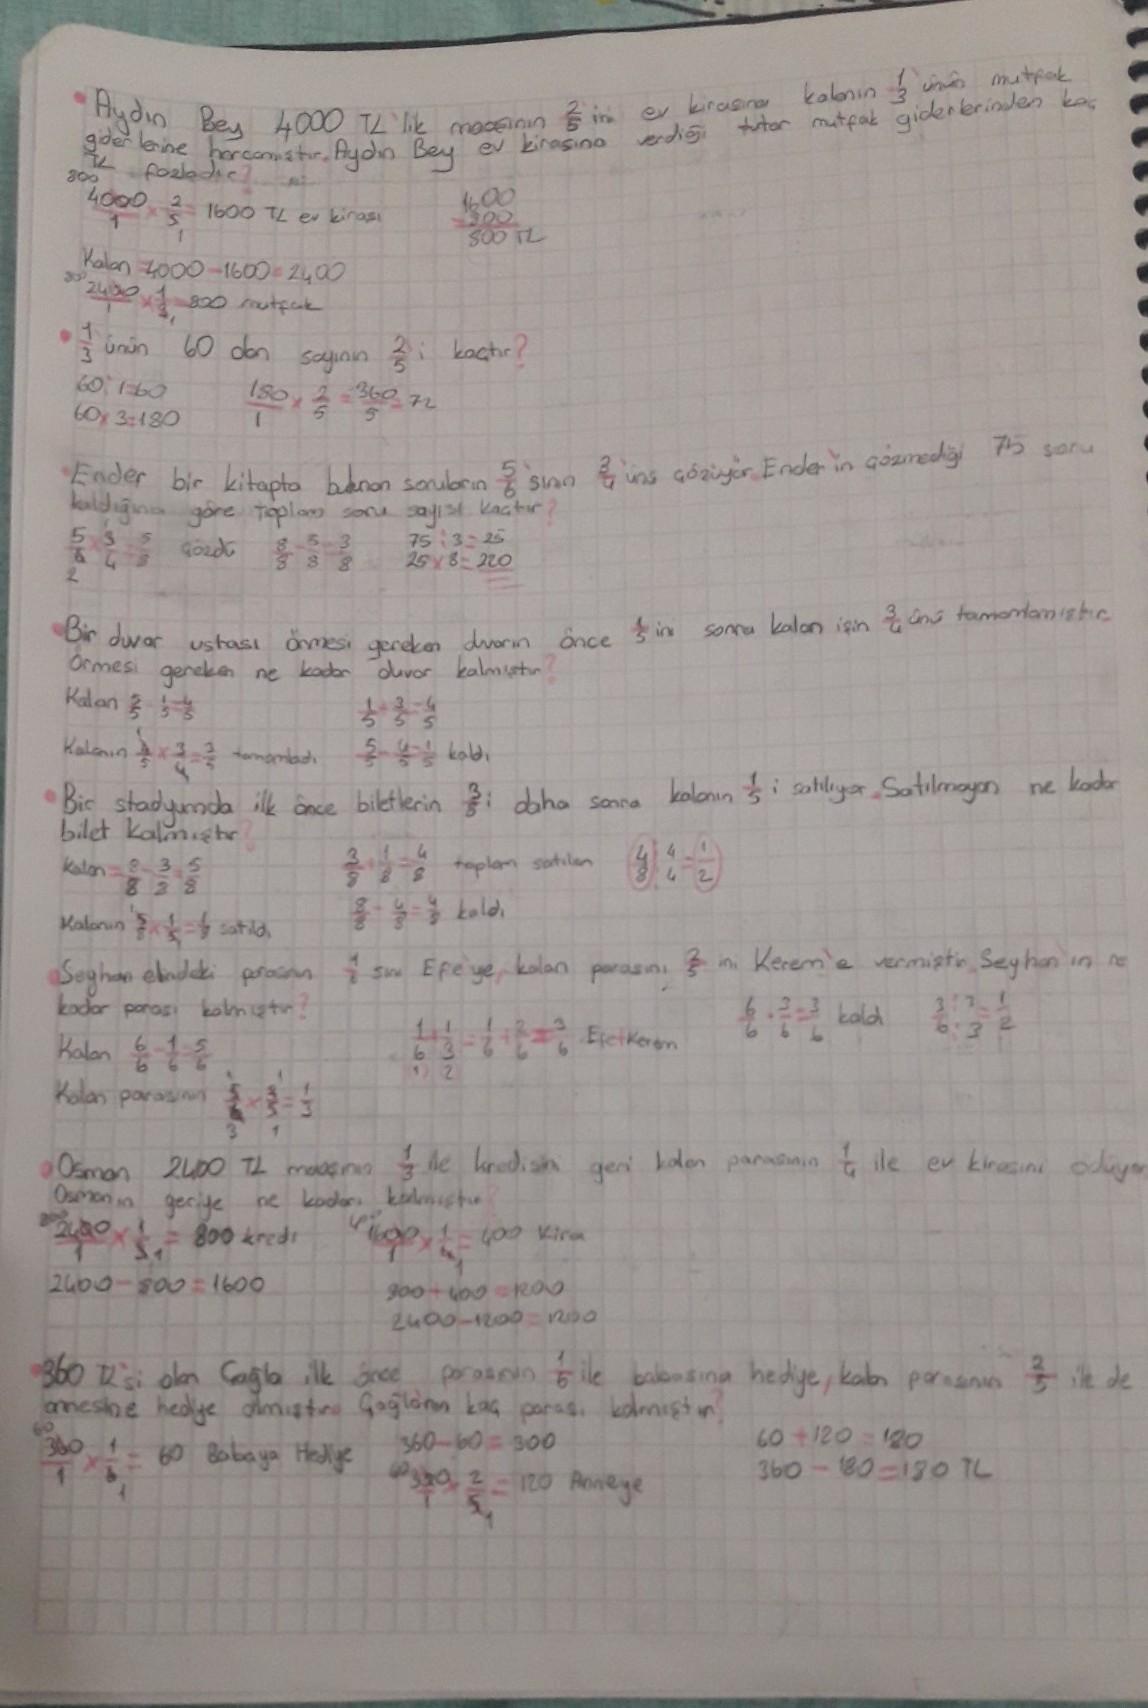 Aydın Bey 4000 TL'lik maaşının 2/5 ini ev kirasına kalanın 1/3 ünün mutfak
giderlerine harcamıştır. Aydın Bey ev kirasına verdiği tutar mutfak giderlerinden kaç
TL fazladır?
800
4000/1 × 2/5 = 1600 TL ev kirası
1600
- 800
800 TL
Kalan = 4000 - 1600 = 2400
800
2400/1 × 1/3 = 800 mutfak
1/3 ünün 60 dan sayının 2/5 i kaçtır?
60 : 1 = 60
60 × 3 = 180
180/1 × 2/5 = 360/5 = 72
Ender bir kitapta bulunan soruların 5/6 sının 3/4 ünü çözüyor. Ender'in çözmediği 75 soru
kaldığına göre toplam soru sayısı kaçtır?
5/6 × 3/4 = 5/8 çözdü
8/8 - 5/8 = 3/8
75 : 3 = 25
25 × 8 = 220
Bir duvar ustası örmesi gereken duvarın önce 1/5 ini sonra kalan işin 3/4 ünü tamamlamıştır.
Örmesi gereken ne kadar duvar kalmıştır?
Kalan 5/5 - 1/5 = 4/5
1/5 + 3/5 = 4/5
Kalanın 4/5 × 3/4 = 3/5 tamamladı
5/5 - 4/5 = 1/5 kaldı
Bir stadyumda ilk önce biletlerin 3/8 i daha sonra kalanın 1/5 i satılıyor. Satılmayan ne kadar
bilet kalmıştır?
Kalan = 8/8 - 3/8 = 5/8
3/8 + 1/8 = 4/8 toplam satılan
4/8 : 4/4 = 1/2
Kalanın 5/8 × 1/5 = 1/8 satıldı
8/8 - 4/8 = 4/8 kaldı
Seyhan elindeki parasının 1/6 sını Efe'ye, kalan parasını 2/5 ini Kerem'e vermiştir. Seyhan'ın ne
kadar parası kalmıştır?
Kalan 6/6 - 1/6 = 5/6
1/6 + 1/3 = 1/6 + 2/6 = 3/6 Efe+Kerem
6/6 - 3/6 = 3/6 kaldı
3/6 : 3/3 = 1/2
Kalan parasının 5/6 × 2/5 = 1/3
Osman 2400 TL maaşının 1/3 ile kredisini geri kalan parasının 1/4 ile ev kirasını ödüyor
Osmanın geriye ne kadarı kalmıştır?
800
2400/1 × 1/3 = 800 kredi
400
1600/1 × 1/4 = 400 Kira
2400 - 800 = 1600
800 + 400 = 1200
2400 - 1200 = 1200
360 TL'si olan Çağla ilk önce parasının 1/6 ile babasına hediye, kalan parasının 2/5 ile de
annesine hediye almıştır. Çağla'nın kaç parası kalmıştır?
60
360/1 × 1/6 = 60 Babaya Hediye
360 - 60 = 300
60
300/1 × 2/5 = 120 Anneye
60 + 120 = 180
360 - 180 = 180 TL